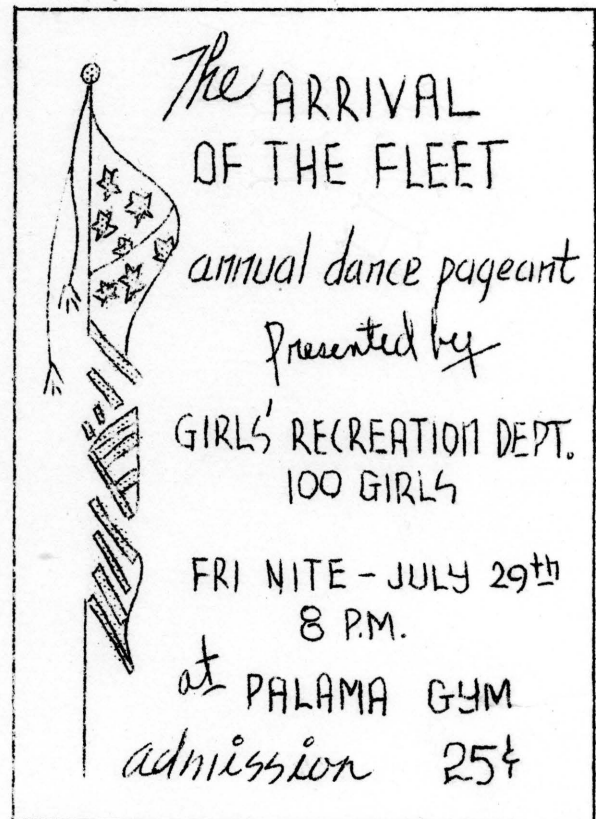 The ARRIVAL
OF THE FLEET
annual dance pageant
Presented by
GIRLS' RECREATION DEPT.
100 GIRLS
FRI NITE - JULY 29th
8 P.M.
at PALAMA GYM
admission 25¢